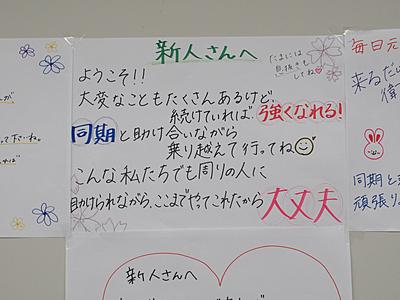 新人さんへ
たまには
息抜きも
してね
ようこそ!!
大変なこともたくさんあるけど、
続けていれば、強くなれる!
同期と助け合いながら
乗り越えて行ってね
こんな私たちでも周りの人に
助けられながら、ここまでやってこれたから大丈夫
新人さんへ
毎日元
来るだけ
同期と
頑張り